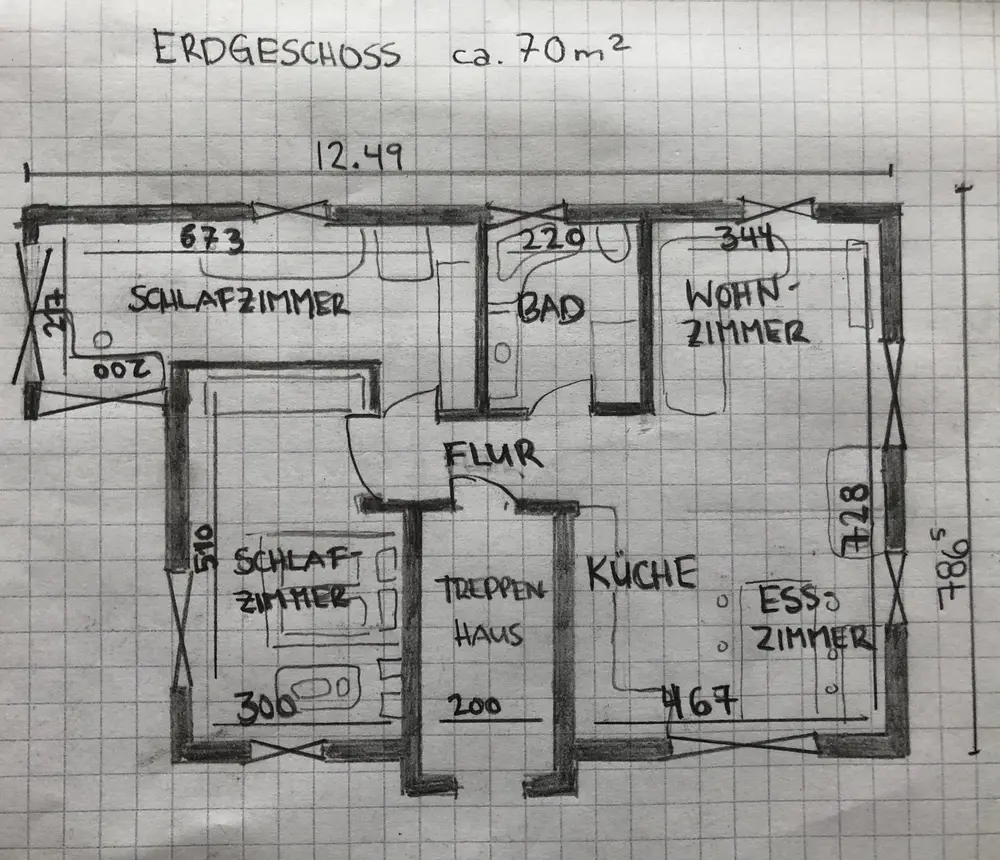 ERDGESCHOSS ca. 70m²
12.49
673
220
344
217
SCHLAFZIMMER
BAD
WOHN-
ZIMMER
200
FLUR
510
728
786⁵
SCHLAF-
ZIMMER
TREPPEN
HAUS
KÜCHE
ESS
ZIMMER
300
200
467